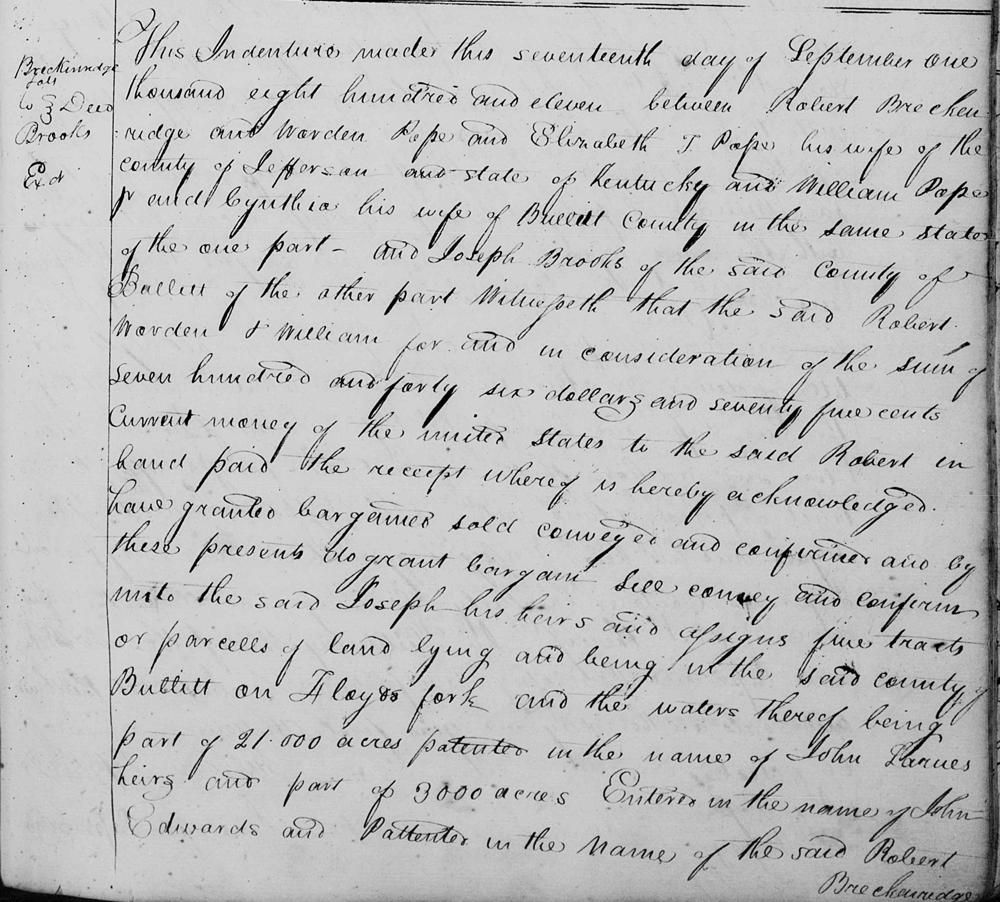 Breckinridge
to } Deed
Brooks
Exd
This Indenture made this seventeenth day of September one
thousand eight hundred and eleven between Robert Brecken
ridge and Worden Pope and Elizabeth T Pope his wife of the
county of Jefferson and state of Kentucky and William Pope
Jr and Cynthia his wife of Bullitt County in the same state
of the one part - and Joseph Brooks of the said County of
Bullitt of the other part Witnesseth that the said Robert
Worden & William for and in consideration of the sum of
seven hundred and forty six dollars and seventy five cents
Current money of the united States to the said Robert in
hand paid the receipt whereof is hereby acknowledged.
have granted bargained sold conveyed and confirmed and by
these presents do grant bargain Sell convey and confirm
unto the said Joseph his heirs and assigns five tracts
or parcells of land lying and being in the said county of
Bullitt on Floyds fork and the waters thereof being
part of 21.000 acres patented in the name of John
heirs and part of 3000 acres Entered in the name of John
Edwards and Pattented in the name of the said Robert
Breckenridge